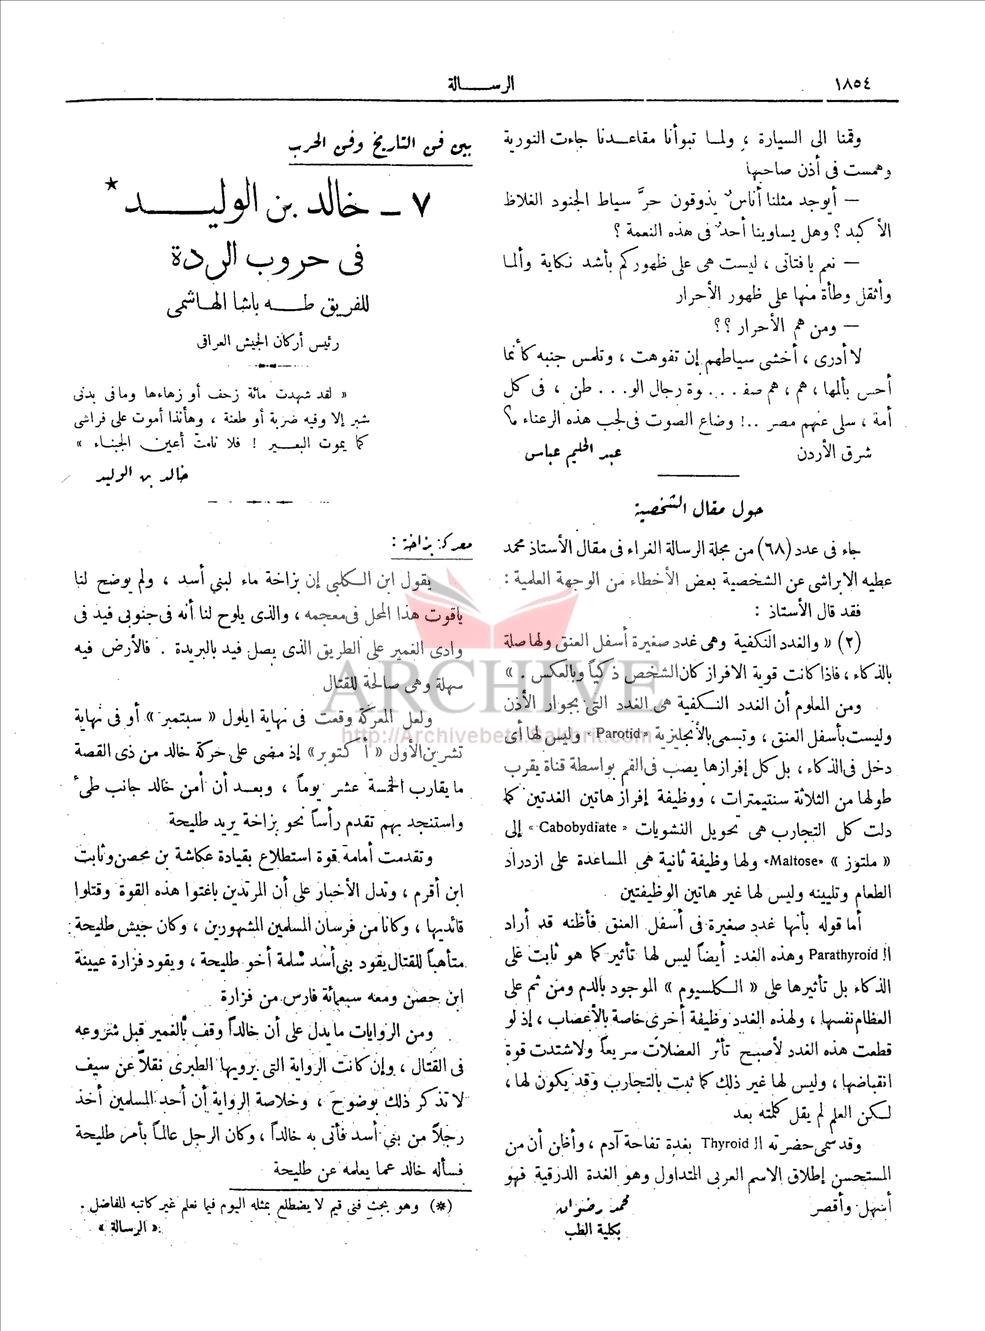 ١٨٥٤
الرســالة
وقمنا الى السيارة ، ولما تبوأنا مقاعدنا جاءت النورية
وهمست فى أذن صاحبها
— أيوجد مثلنا أناسٌ يذوقون حرَّ سياط الجنود الغلاظ
الأكبد ؟ وهل يساوينا أحدٌ فى هذه النعمة ؟
— نعم يافتاتى ، ليست هى على ظهوركم بأشد نكاية وألما
وأثقل وطأة منها على ظهور الأحرار
— ومن هم الأحرار ؟؟
لا أدرى ، أخشى سياطهم إن تفوهت ، وتلمس جنبه كأنما
أحس بألمها ، هم ، هم صفـ . . . وة رجال الو . . . طن ، فى كل
أمة ، سلى عنهم مصر ..! وضاع الصوت فى لجب هذه الرعناء م؟
شرق الأردن
عبد الحليم عباس
حول مقال الشخصية
جاء فى عدد (٦٨) من مجلة الرسالة الغراء فى مقال الأستاذ محمد
عطيه الابراشى عن الشخصية بعض الأخطاء من الوجهة العلمية :
فقد قال الأستاذ :
(٢) « والغدد النكفية وهى غدد صغيرة أسفل العنق ولها صلة
بالذكاء ، فاذا كانت قوية الافراز كان الشخص ذكياً وبالعكس . »
ومن المعلوم أن الغدد النكفية هى الغدد التى بجوار الأذن
وليست بأسفل العنق ، وتسمى بالأنجليزية «Parotid» وليس لها أى
دخل فى الذكاء ، بل كل إفرازها يصب فى الفم بواسطة قناة يقرب
طولها من الثلاثة سنتيمترات ، ووظيفة إفراز هاتين الغدتين كما
دلت كل التجارب هى تحويل النشويات «Cabobydiate» إلى
« ملتوز » «Maltose» ولها وظيفة ثانية هى المساعدة على ازدراد
الطعام وتليينه وليس لها غير هاتين الوظيفتين
أما قوله بأنها غدد صغيرة فى أسفل العنق فأظنه قد أراد
الـ Parathyroid وهذه الغدد أيضاً ليس لها تأثير كما هو ثابت على
الذكاء بل تأثيرها على « الكلسيوم » الموجود بالدم ومن ثم على
العظام نفسها ، ولهذه الغدد وظيفة أخرى خاصة بالأعصاب ، إذ لو
قطعت هذه الغدد لأصبح تأثر العضلات سريعاً ولاشتدت قوة
انقباضها ، وليس لها غير ذلك كما ثبت بالتجارب وقد يكون لها ،
لكن العلم لم يقل كلمته بعد
وقد سمى حضرته الـ Thyroid بغدة تفاحة آدم ، وأظن أن من
المستحسن إطلاق الاسم العربى المتداول وهو الغدة الدرقية فهو
أسهل وأقصر
محمد رضوان
بكلية الطب
بين فى التاريخ وفى الحرب
٧ – خالد بن الوليد *
فى حروب الردة
للفريق طــه باشا الهاشمى
رئيس أركان الجيش العراقى
« لقد شهدت مائة زحف أو زهاءها وما فى بدنى
شبر إلا وفيه ضربة أو طعنة ، وهأنذا أموت على فراشى
كما يموت البعـير ! فلا نامت أعين الجبناء »
خالد بن الوليد
معركة بزاخة :
يقول ابن الكلبى إن بزاخة ماء لبنى أسد ، ولم يوضح لنا
ياقوت هذا المحل فى معجمه ، والذى يلوح لنا أنه فى جنوبى فيد فى
وادى الغمير على الطريق الذى يصل فيد بالبريدة . فالأرض فيه
سهلة وهى صالحة للقتال
ولعل المعركة وقعت فى نهاية ايلول « سبتمبر » أو فى نهاية
تشرين الأول « أكتوبر » إذ مضى على حركة خالد من ذى القصة
ما يقارب الخمسة عشر يوماً ، وبعد أن أمن خالد جانب طىء
واستنجد بهم تقدم رأساً نحو بزاخة يريد طليحة
وتقدمت أمامه قوة استطلاع بقيادة عكاشة بن محصن وثابت
ابن أقرم ، وتدل الأخبار على أن المرتدين باغتوا هذه القوة وقتلوا
قائديها ، وكانا من فرسان المسلمين المشهورين ، وكان جيش طليحة
متأهباً للقتال يقود بنى أسد سلمة أخو طليحة ، ويقود فزارة عيينة
ابن حصن ومعه سبعمائة فارس من فزارة
ومن الروايات ما يدل على أن خالداً وقف بالغمير قبل شروعه
فى القتال ، وإن كانت الرواية التى يرويها الطبرى نقلاً عن سيف
لا تذكر ذلك بوضوح ، وخلاصة الرواية أن أحد المسلمين أخذ
رجلاً من بنى أسد فأتى به خالداً ، وكان الرجل عالماً بأمر طليحة
فسأله خالد عما يعلمه عن طليحة
(*) وهو بحث فنى قيم لا يضطلع بمثله اليوم فيما نعلم غير كاتبه الفاضل .
« الرسالة »
ARCHIVE
http://Archivebeta.Sakhrit.com